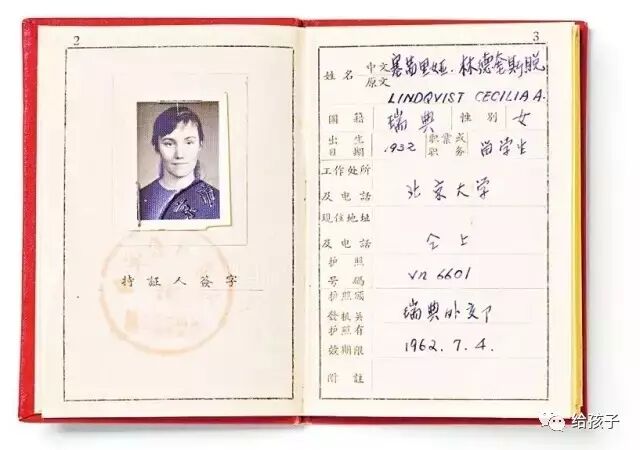 2
持証人簽字
3
姓名 中文 塞茜里娅. 林德奎斯脱
原文 LINDQVIST CECILIA A.
國籍 瑞典 性别 女
出生 职業或
日期 1932 职务 留学生
工作处所
及电話 北京大学
现住地址
及电話 仝上
护照
号碼 vn 6601
护照頒
發机关 瑞典外交卩
护照有
效期限 1962.7.4.
附註
给孩子